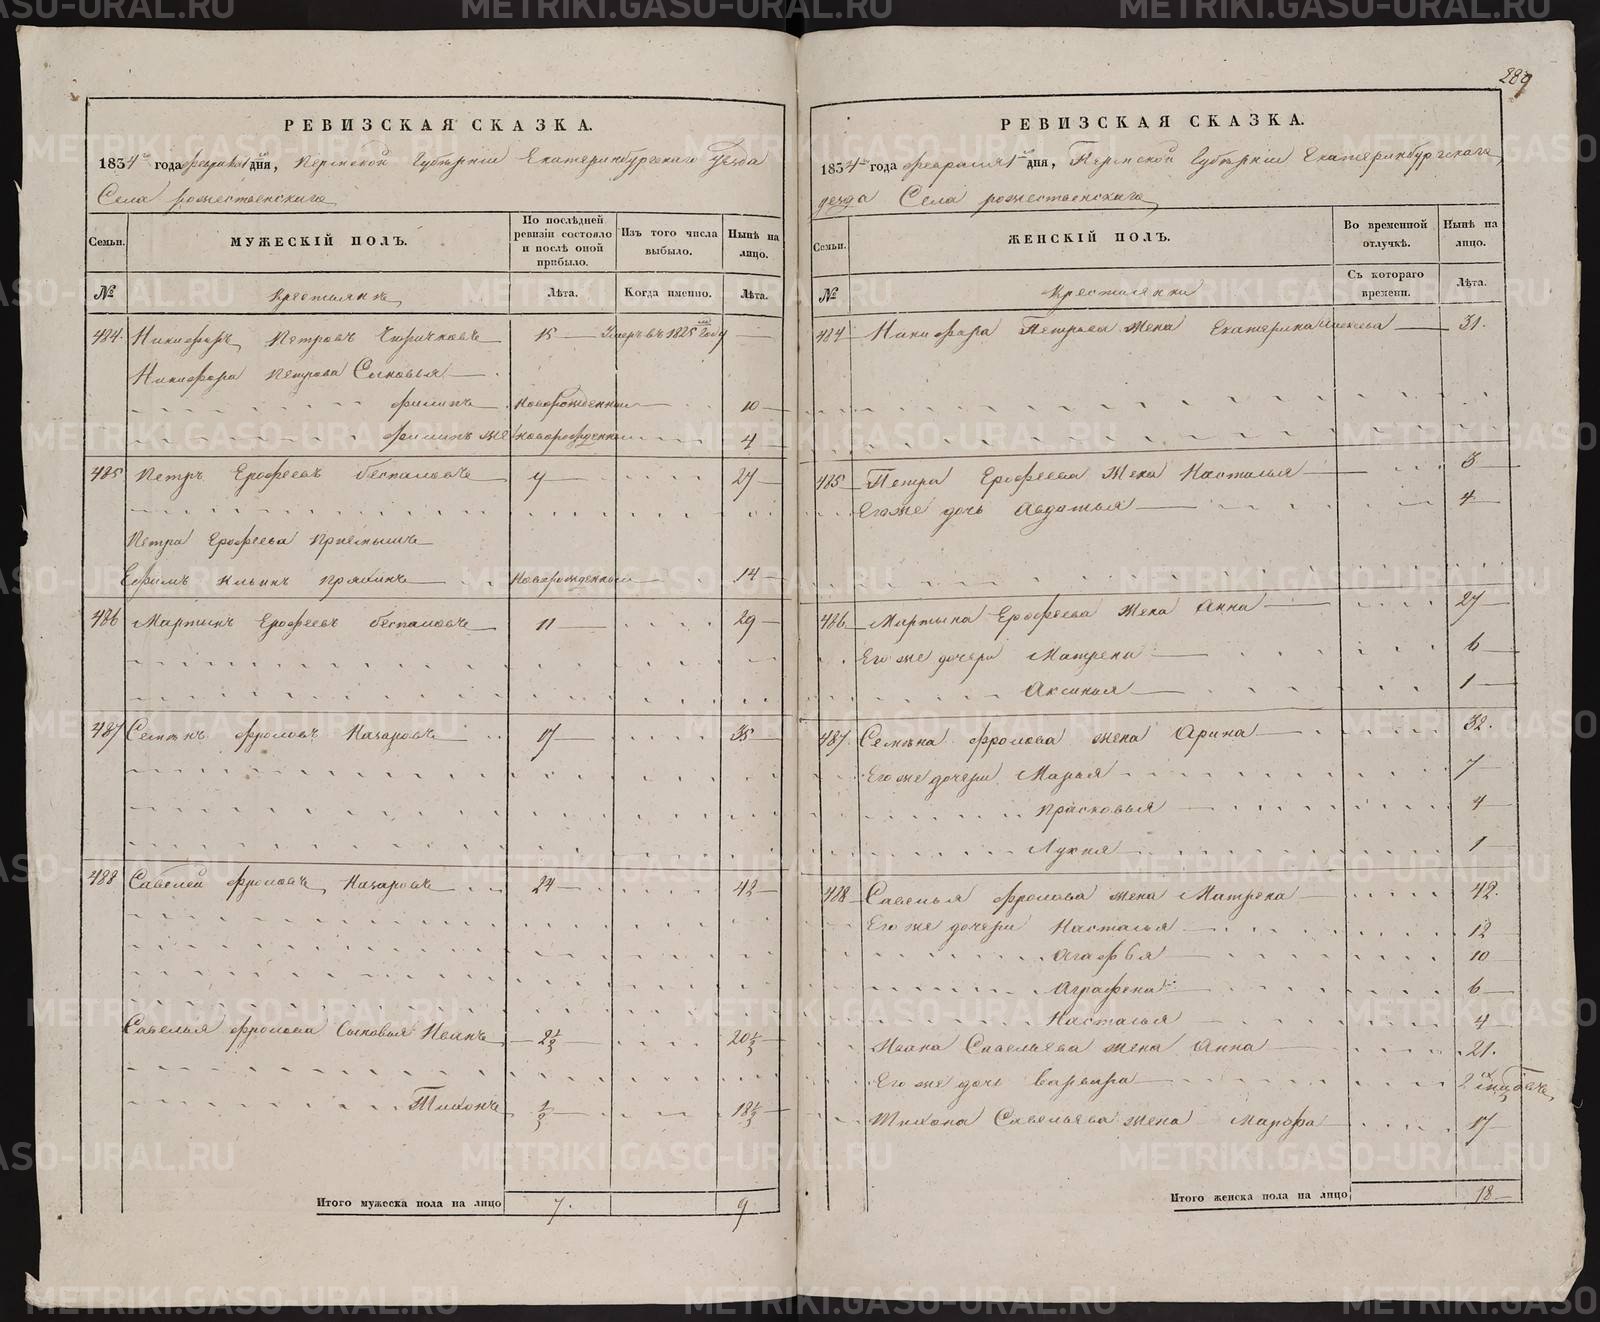 289
РЕВИЗСКАЯ СКАЗКА.
1834 года февраля 1 дня, Пермской Губерніи Екатеринбургскаго уезда
Села рожественскаго
Семьи. МУЖЕСКІЙ ПОЛЪ. По послѣдней ревизіи состояло и послѣ оной прибыло. Изъ того числа выбыло. Нынѣ на лицо.
№ Крестьяне Лѣта. Когда именно. Лѣта.
484. Никифоръ Петровъ 15 Умеръ въ 1825 году
Никифора Петрова Сыновья
филипъ новорожденный 10
филипъ же новорожденный 4
485 Петръ Ерофеевъ беспаловъ 7 27
Петра Ерофеева Приемышъ
Ефимъ Ильинъ новорожденный 14
486 Мартинъ Ерофеевъ беспаловъ 11 29
487 Семенъ фроловъ Назаровъ 17 35
488 Савелей фроловъ Назаровъ 24 42
Савелья фролова Сыновья Иванъ 2½ 20½
Тихонъ ½ 18½
Итого мужеска пола на лицо 7. 9
РЕВИЗСКАЯ СКАЗКА.
1834 года февраля 1 дня, Пермской Губерніи Екатеринбургскаго
уезда Села рожественскаго
Семьи. ЖЕНСКІЙ ПОЛЪ. Во временной отлучкѣ. Нынѣ на лицо.
№ Крестьянки Съ котораго времени. Лѣта.
484 Никифора Петрова жена Екатерина 31.
485 Петра Ерофеева жена Насталья 3
Его же дочь Авдотья 4
486 Мартына Ерофеева жена Анна 27
Его же дочери Матрена 6
Аксинья 1
487. Семена фролова жена Арина 32.
Его же дочери Марья 7
Прасковья 4
Лукия 1
488 Савелья фролова жена Матрена 42.
Его же дочери Насталья 12
Агафья 10
Аграфена 6
Насталья 4
Ивана Савельева жена Анна 21.
Его же дочь Варвара 2
Тихона Савельева жена Марфа 17
Итого женска пола на лицо 18